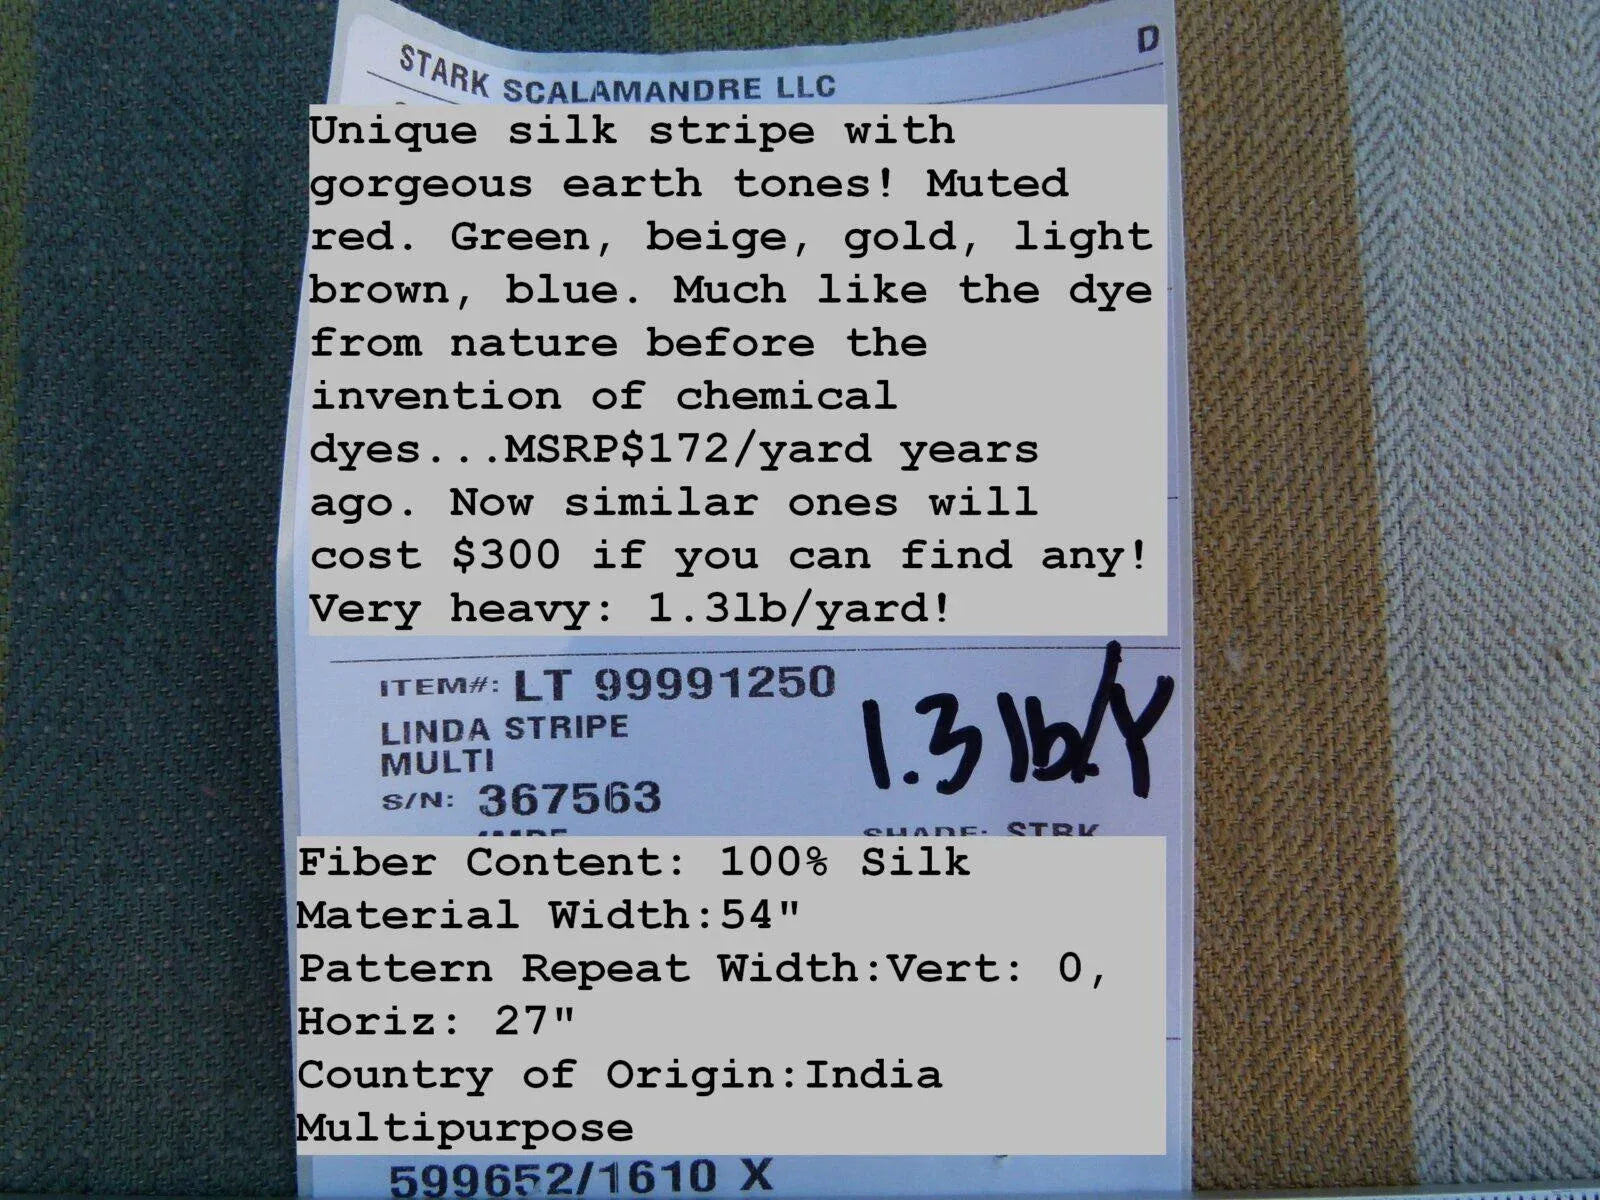 D
STARK SCALAMANDRE LLC
Unique silk stripe with
gorgeous earth tones! Muted
red. Green, beige, gold, light
brown, blue. Much like the dye
from nature before the
invention of chemical
dyes...MSRP$172/yard years
ago. Now similar ones will
cost $300 if you can find any!
Very heavy: 1.3lb/yard!
ITEM#: LT 99991250
LINDA STRIPE
MULTI
1.3 lb/Y
S/N: 367563
SHADE: STRK
Fiber Content: 100% Silk
Material Width:54"
Pattern Repeat Width:Vert: 0,
Horiz: 27"
Country of Origin:India
Multipurpose
599652/1610 X